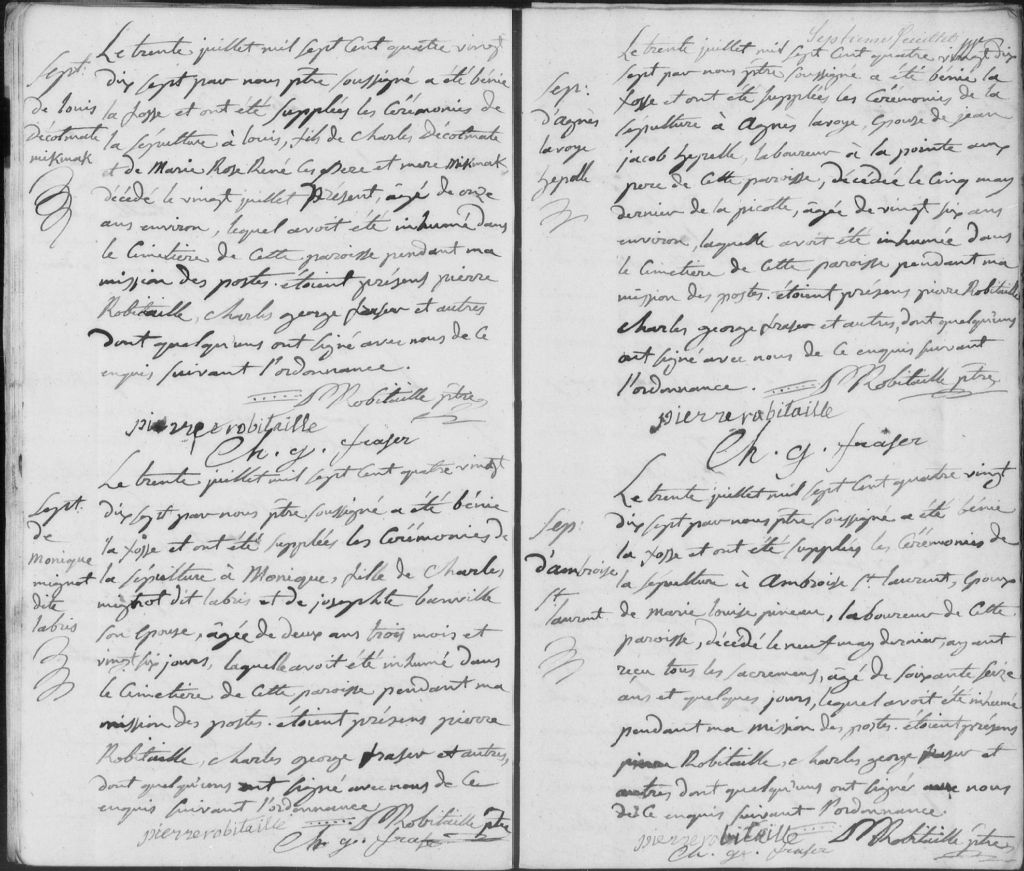 Le trente juillet mil sept Cent quatre vingt
dix sept par nous ptre soussigné a été bénie
la fosse et ont été supplées les Cérémonies de
la sépulture à louis, fils de Charles Décolmate
+ de Marie Rose René les pere et mere mikmak
décédé le vingt juillet présent, âgé de onze
ans environ, lequel avoit été inhumé dans
le Cimetiere de Cette paroisse pendant ma
mission des postes. étoient présens pierre
Robitaille, charles george fraser et autres
dont quelqu'uns ont signé avec nous de Ce
enquis suivant l'ordonnance.
Robitaille ptre
pierre robitaille
Ch. g. fraser
Sept.
de louis
Décolmate
mikmak
Le trente juillet mil sept Cent quatre vingt
dix sept par nous ptre soussigné a été bénie
la fosse et ont été supplées les Cérémonies de
la sépulture à Monique, fille de Charles
mignot dit labris et de josephte banville
son Epouse, âgée de deux ans trois mois et
vingt six jours, laquelle avoit été inhumé dans
le Cimetiere de Cette paroisse pendant ma
mission des postes. étoient présens pierre
Robitaille, charles george fraser et autres,
dont quelqu'uns ont signé avec nous de Ce
enquis suivant l'ordonnance
Robitaille ptre
pierre robitaille
Ch. g. fraser
Sept.
de
Monique
mignot
dite
labris
Septieme feuillet
Le trente juillet mil sept Cent quatre vingt dix
sept par nous ptre soussigné a été bénie la
fosse et ont été supplées les Cérémonies de la
sépulture à Agnès lavoye, Epouse de jean
jacob, laboureur à la pointe aux
pere de Cette paroisse, décédée le Cinq may
dernier de la picotte, âgée de vingt six ans
environ, laquelle avoit été inhumée dans
le Cimetiere de Cette paroisse pendant ma
mission des postes. étoient présens pierre Robitaille
charles george fraser et autres, dont quelqu'uns
ont signé avec nous de Ce enquis suivant
l'ordonnance.
Robitaille ptre
pierre robitaille
Ch. g. fraser
Sep:
d'agnès
lavoye
Le trente juillet mil sept Cent quatre vingt
dix sept par nous ptre soussigné a été bénie
la fosse et ont été supplées les Cérémonies de
la sépulture à Ambroise St. laurent, Epoux
de Marie louise pineau, laboureur de Cette
paroisse, décédé le neuf may dernier, ayant
reçu tous les sacremens, âgé de soixante seize
ans et quelques jours, lequel avoit été inhumé
pendant ma mission des postes. étoient présens
Robitaille, charles george fraser et
autres dont quelqu'uns ont signé avec nous
de Ce enquis suivant l'ordonnance.
Robitaille ptre
pierre robitaille
Ch. g. fraser
Sep:
d'ambroise
St.
laurent